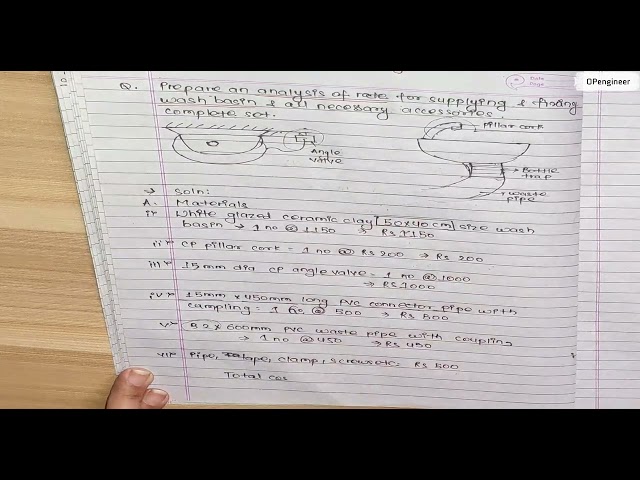 OPengineer
Date
Page
Q. Prepare an analysis of rate for supplying & fixing
wash basin & all necessary accessories.
complete set.
Pillar cork
Angle
valve
Bottle
trap
waste
pipe
→ Soln:
A. Materials
i) White glazed ceramic clay [50x40cm] size wash
basin → 1 no @ 1150 → Rs 1150
ii) CP pillar cork = 1 no @ Rs 200 → Rs 200
iii) 15mm dia CP angle valve = 1 no @ 1000
→ Rs 1000
iv) 15mm x 450mm long PVC connector pipe with
campling = 1 no @ 500 → Rs 500
v) 32 x 600mm PVC waste pipe with coupling
→ 1 no @ 450 → Rs 450
vi) Pipe, tape, clamp, screws etc = Rs 500
Total cos